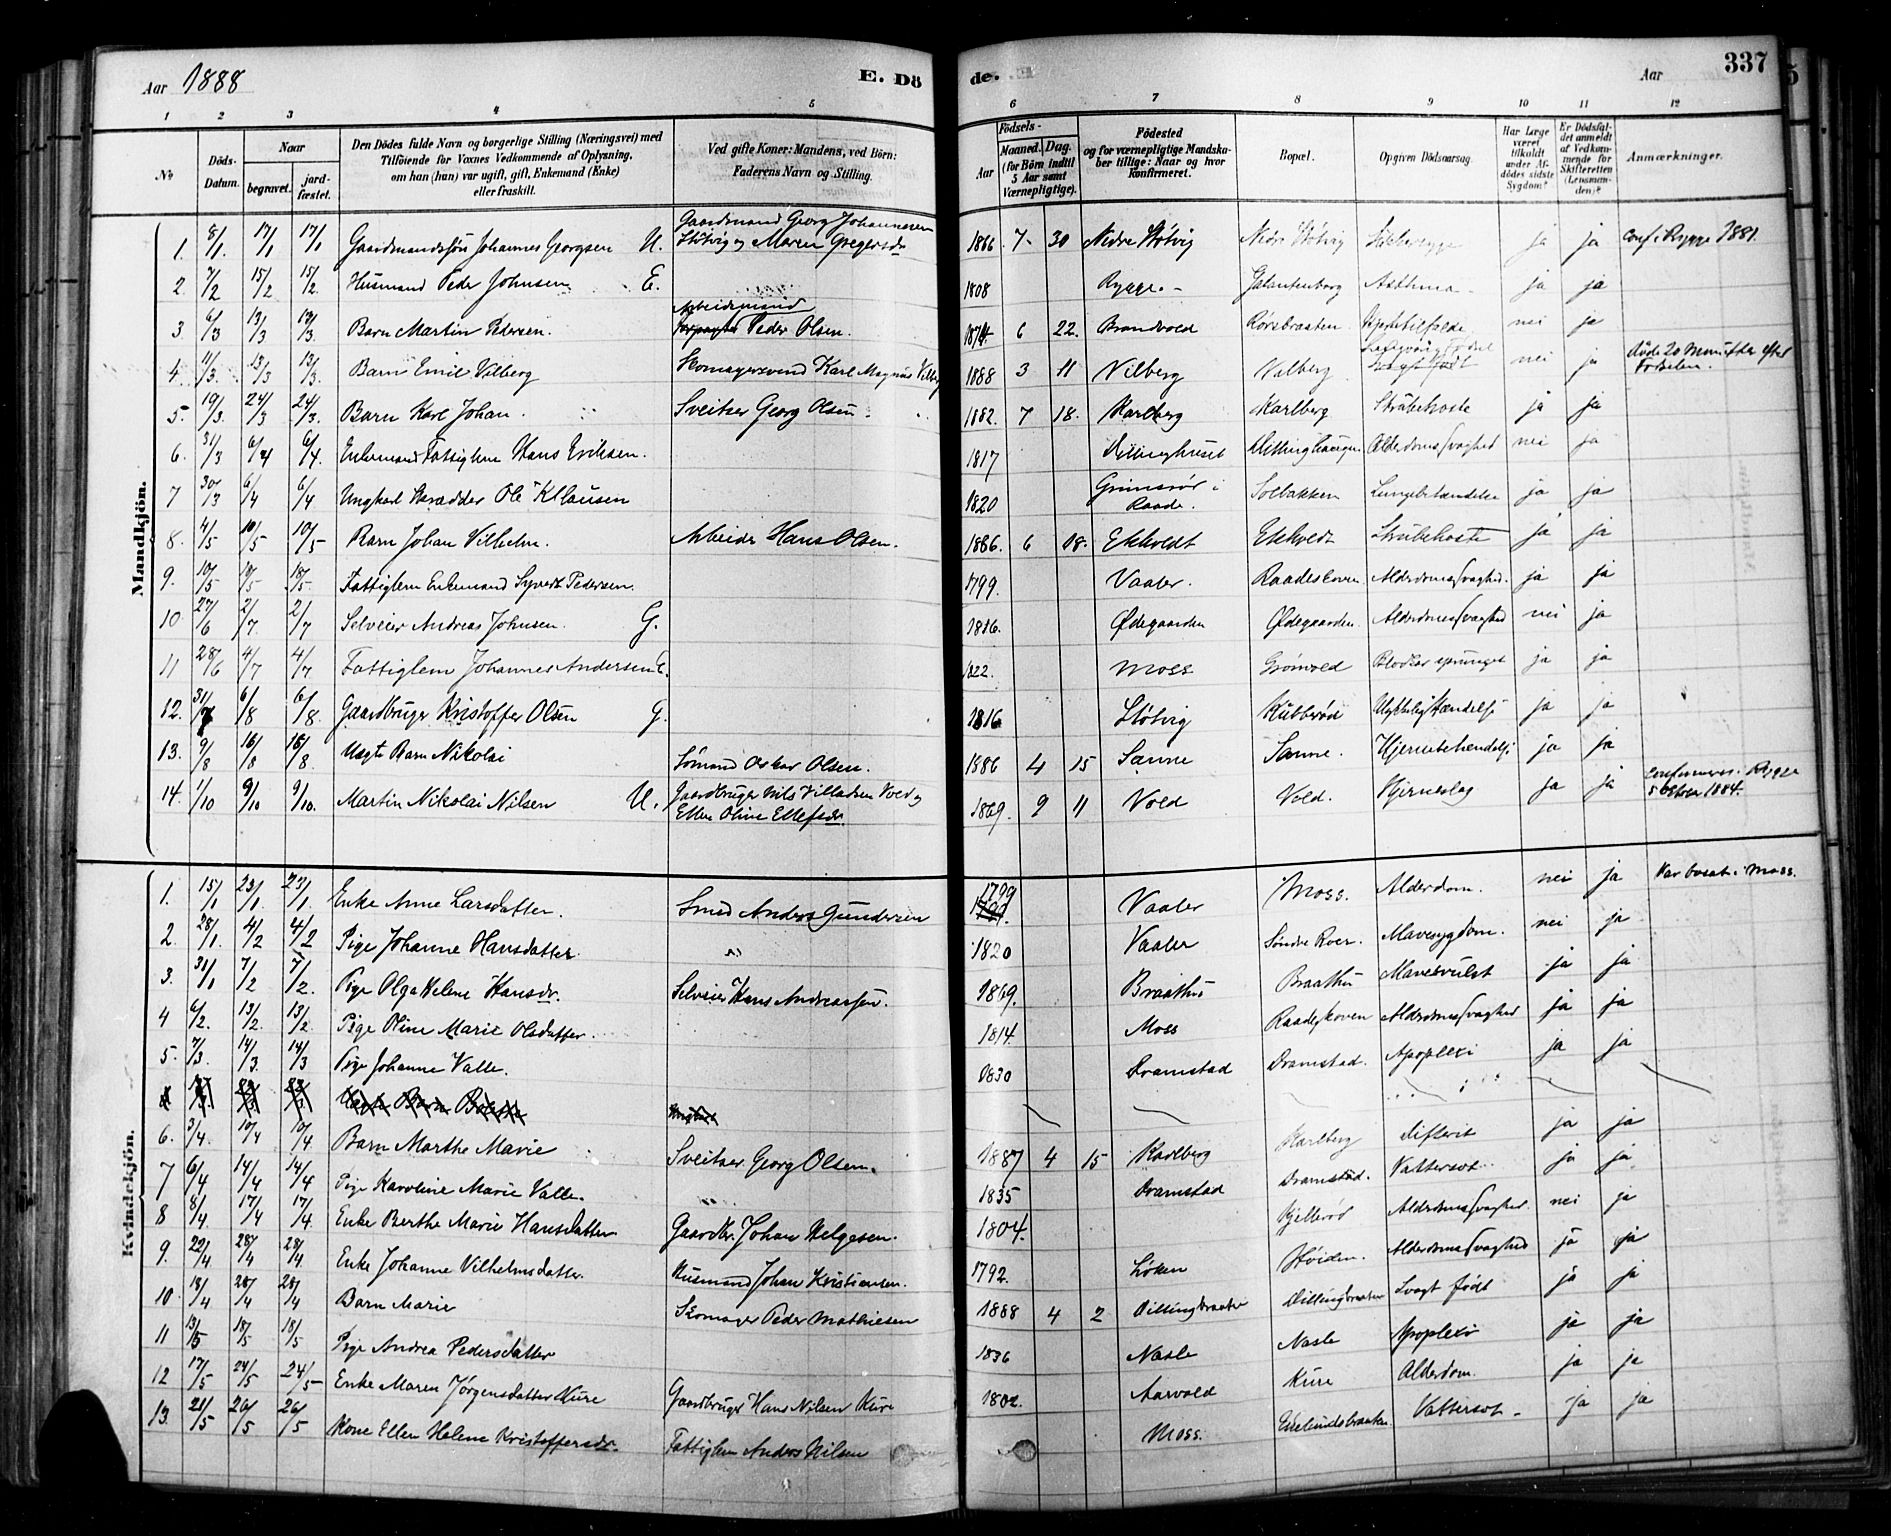 Aar 1888
E. Dö
de.
Aar
337
1 2 3 4 5 6 7 8 9 10 11 12
No
Döds-Datum.
Naar
begravet.
jord-fæstet.
Den Dödes fulde Navn og borgerlige Stilling (Næringsvei) med
Tilföiende for Voxnes Vedkommende af Oplysning,
om han (hun) var ugift, gift, Enkemand (Enke)
eller fraskilt.
Ved gifte Koner: Mandens, ved Börn:
Faderens Navn og Stilling.
Födsels-
Aar
Maaned. Dag.
(for Börn indtil
5 Aar samt
Værnepligtige).
Födested
og for værnepligtige Mandska-
ber tillige: Naar og hvor
konfirmeret.
Bopæl.
Opgiven Dödsaarsag.
Har Læge
været
tilkaldt
under Af-
dödes sidste
Sygdom?
Er Dödsfal-
det anmeldt
af Vedkom-
mende for
Skifteretten
(Lensman-
den)?
Anmærkninger.
Mandkjön.
Gaardmand Georg Johannesen
1. 8/1. 17/1 17/1 Gaardmandssøn Johannes Georgsen U. Støtvig og Maren Gregersdr 1866. 7. 30 Nedre Støtvig Nedre Støtvig ja ja conf. i Rygge 1881.
2. 7/2 15/2 15/2. Husmand Peder Johnsen E. 1808 Rygge. Galantenborg Asthma ja ja
Arbeidsmand
3. 6/3 13/3 13/3. Barn Martin Pedersen. Peder Olsen. 6 22. Brandvold Rørsbraaten. Hjertetilfælde nei ja
4. 11/3. 13/3 13/3. Barn Emil Vilberg Skomagersvend Karl Magnus Vilberg 1888 3 11 Vilberg Valberg svagt født nei ja Døde 20 Minutter efter Fødselen.
5. 19/3. 24/3 24/3. Barn Karl Johan. Sveitser Georg Olsen 1882. 7 18. Karlberg Karlberg. Strubehoste ja ja
6. 31/3 6/4 6/4. Enkemand Fattiglem Hans Eriksen. 1817 Dillinghuset Dillinghaugen Alderdomssvaghed nei ja
7 30/3 6/4 6/4 Ungkarl Skrædder Ole Klausen 1820 Grimsrør i Raade. Solbakken Lungebetændelse ja ja
8. 4/5 10/5 10/5 Barn Johan Vilhelm. Arbeider Hans Olsen. 1886. 6 18. Ekholdt Ekholdt Strubehoste ja ja
9. 10/5 18/5. Fattiglem Enkemand Syvert Pedersen. 1799. Vaaler. Raadeskoven Alderdomssvaghed. ja ja
10. 27/6 2/7. 2/7 Selveier Andreas Johnsen. G. 1816. Ødegaarden Ødegaarden. Alderdomssvaghed nei ja
11 28/6 4/7 4/7 Fattiglem Johannes Andersen E. 1822. Moss Grønvold Blodkar sprunget ja ja
12. 31/7 6/8 6/8. Gaardbruger Kristoffer Olsen G. 1816 Støtvig Kubberød Ulykkelig Hændelse ja ja
13. 9/8 16/8 16/8. Uægte Barn Nikolai Sømand Oskar Olsen. 1886 4 15 Sanne Sanne. Hjernebetændelse ja ja
14. 1/10 9/10 9/10. Martin Nikolai Nilsen U. Gaardbruger Nils Villadsen Vold og 1869. 9 11 Vold Vold. Hjerneslag ja ja confirmeret i Rygge
Ellen Oline Ellefsdr. 5 October 1884.
Kvindekjön.
1. 15/1 23/1. 23/1. Enke Anne Larsdatter. Smed Anders Gundersen 1799 Vaaler Moss. Alderdom. nei ja Var bosat i Moss.
2. 28/1. 4/2 4/2 Pige Johanne Hansdatter 1820 Vaaler Søndre Roer. Mavesygdom. nei ja
3. 31/1 7/2 7/2. Pige Olga Helene Hansdr. Selveier Hans Andreassen. 1869. Braathen Braathen Mavesvulst ja ja
4 6/2. 13/2. 13/2 Pige Oline Marie Olsdatter. 1814. Moss Raadeskoven Alderdomssvaghed ja ja
5. 7/3. 14/3. 14/3 Pige Johanne Valle. 1830 Dramstad Dramstad. Apoplexi ja ja
6. 3/4. 10/4 10/4 Barn Marthe Marie Sveitser Georg Olsen. 1887 4 15 Karlberg Karlberg Difterit ja ja
7 6/4 14/4 14/4 Pige Karoline Marie Valle. 1835 Dramstad Dramstad. Vattersot ja ja
8 8/4. 17/4 17/4 Enke Berthe Marie Hansdatter Gaardbr. Johan Helgesen. 1804. Gjellerød Alderdomssvaghed. nei ja
9. 22/4 28/4 28/4 Enke Johanne Vilhelmsdatter. Husmand Johan Kristiansen. 1792. Løken Høiden. Alderdomssvaghed ja ja
10. 18/4 28/4 28/4 Barn Marie Skomager Peder Mathiesen 1888 4 2 Dillingbraaten Dillingbraaten Svagt født ja ja
11 13/5 18/5 18/5 Pige Andrea Pedersdatter 1836 Nasle Nasle Apoplexi ja ja
12 17/5 24/5 24/5 Enke Maren Jørgensdatter Kure Gaardbruger Hans Nilsen Kure 1802. Aarvold Kure Alderdom. ja ja
13. 21/5 26/5 26/5 Kone Ellen Helene Kristoffersdr. Fattiglem Anders Nilsen Moss. Vattersot ja ja